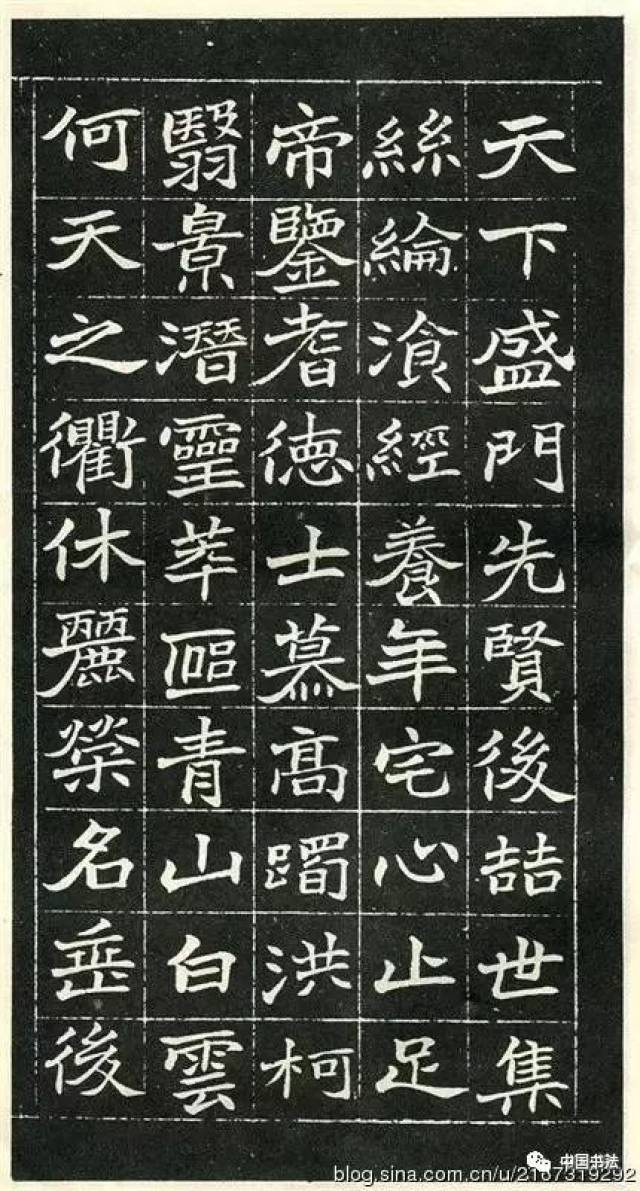 天下盛門先賢後喆世集
絲綸湌經養年宅心止足
帝鑒耆徳士慕高躅洪柯
翳景潛靈萃區青山白雲
何天之衢休麗榮名垂後
中国书法
blog.sina.com.cn/u/2167319292